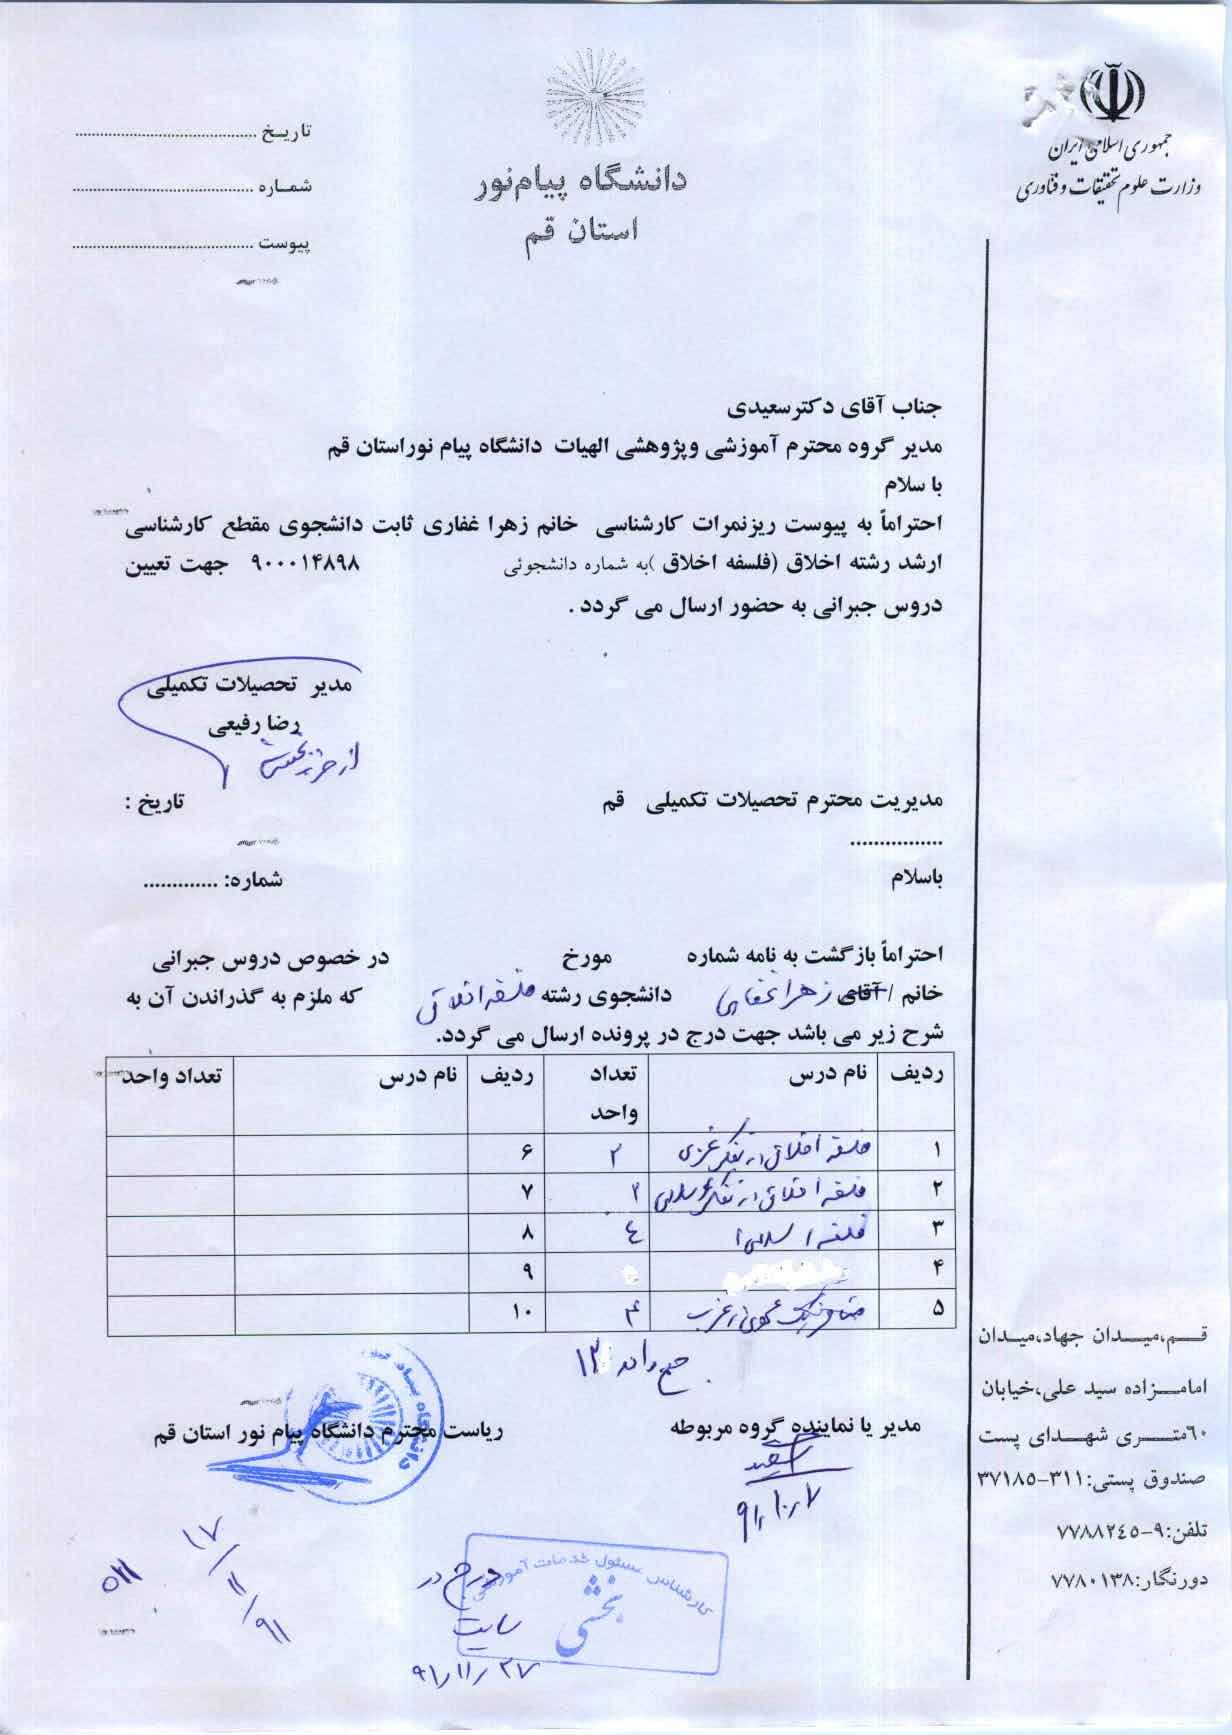 جمهوری اسلامی ایران
وزارت علوم تحقیقات و فناوری
دانشگاه پیام‌نور
استان قم
تاریخ ..........................................
شماره ..........................................
پیوست ..........................................
جناب آقای دکترسعیدی
مدیر گروه محترم آموزشی وپژوهشی الهیات دانشگاه پیام نوراستان قم
با سلام
احتراماً به پیوست ریزنمرات کارشناسی خانم زهرا غفاری ثابت دانشجوی مقطع کارشناسی
ارشد رشته اخلاق (فلسفه اخلاق )به شماره دانشجوئی ۹۰۰۰۱۴۸۹۸ جهت تعیین
دروس جبرانی به حضور ارسال می گردد .
مدیر تحصیلات تکمیلی
رضا رفیعی
مدیریت محترم تحصیلات تکمیلی قم
تاریخ :
................
باسلام
شماره: .............
احتراماً بازگشت به نامه شماره مورخ در خصوص دروس جبرانی
خانم /آقای زهرا غفاری دانشجوی رشته فلسفه اخلاق که ملزم به گذراندن آن به
شرح زیر می باشد جهت درج در پرونده ارسال می گردد.
ردیف نام درس تعداد واحد ردیف نام درس تعداد واحد
۱ فلسفه اخلاق در تفکر غربی ۲ ۶
۲ فلسفه اخلاق در تفکر اسلامی ۲ ۷
۳ فلسفه اسلامی ۱ ٤ ۸
۴ ۹
۵ متافیزیک عمومی در غرب ۴ ۱۰
جمع واحد ۱۲
مدیر یا نماینده گروه مربوطه
ریاست محترم دانشگاه پیام نور استان قم
۹۱,۱۰,۷
۱۷/۱۱/۹۱
۵۲۱
کارشناس مسئول خدمات آموزشی
بخشی
درج در
سایت
۹۱/۱۱/۲۷
قـــم،میـــدان جهاد،میـدان
امامـــزاده سید علی،خیابان
٦٠متـــری شهـــدای پست
صندوق پستی:۳۱۱-۳۷۱۸۵
تلفن:۹-۷۷۸۸۲٤٥
دورنگار:۷۷۸۰۱۳۸